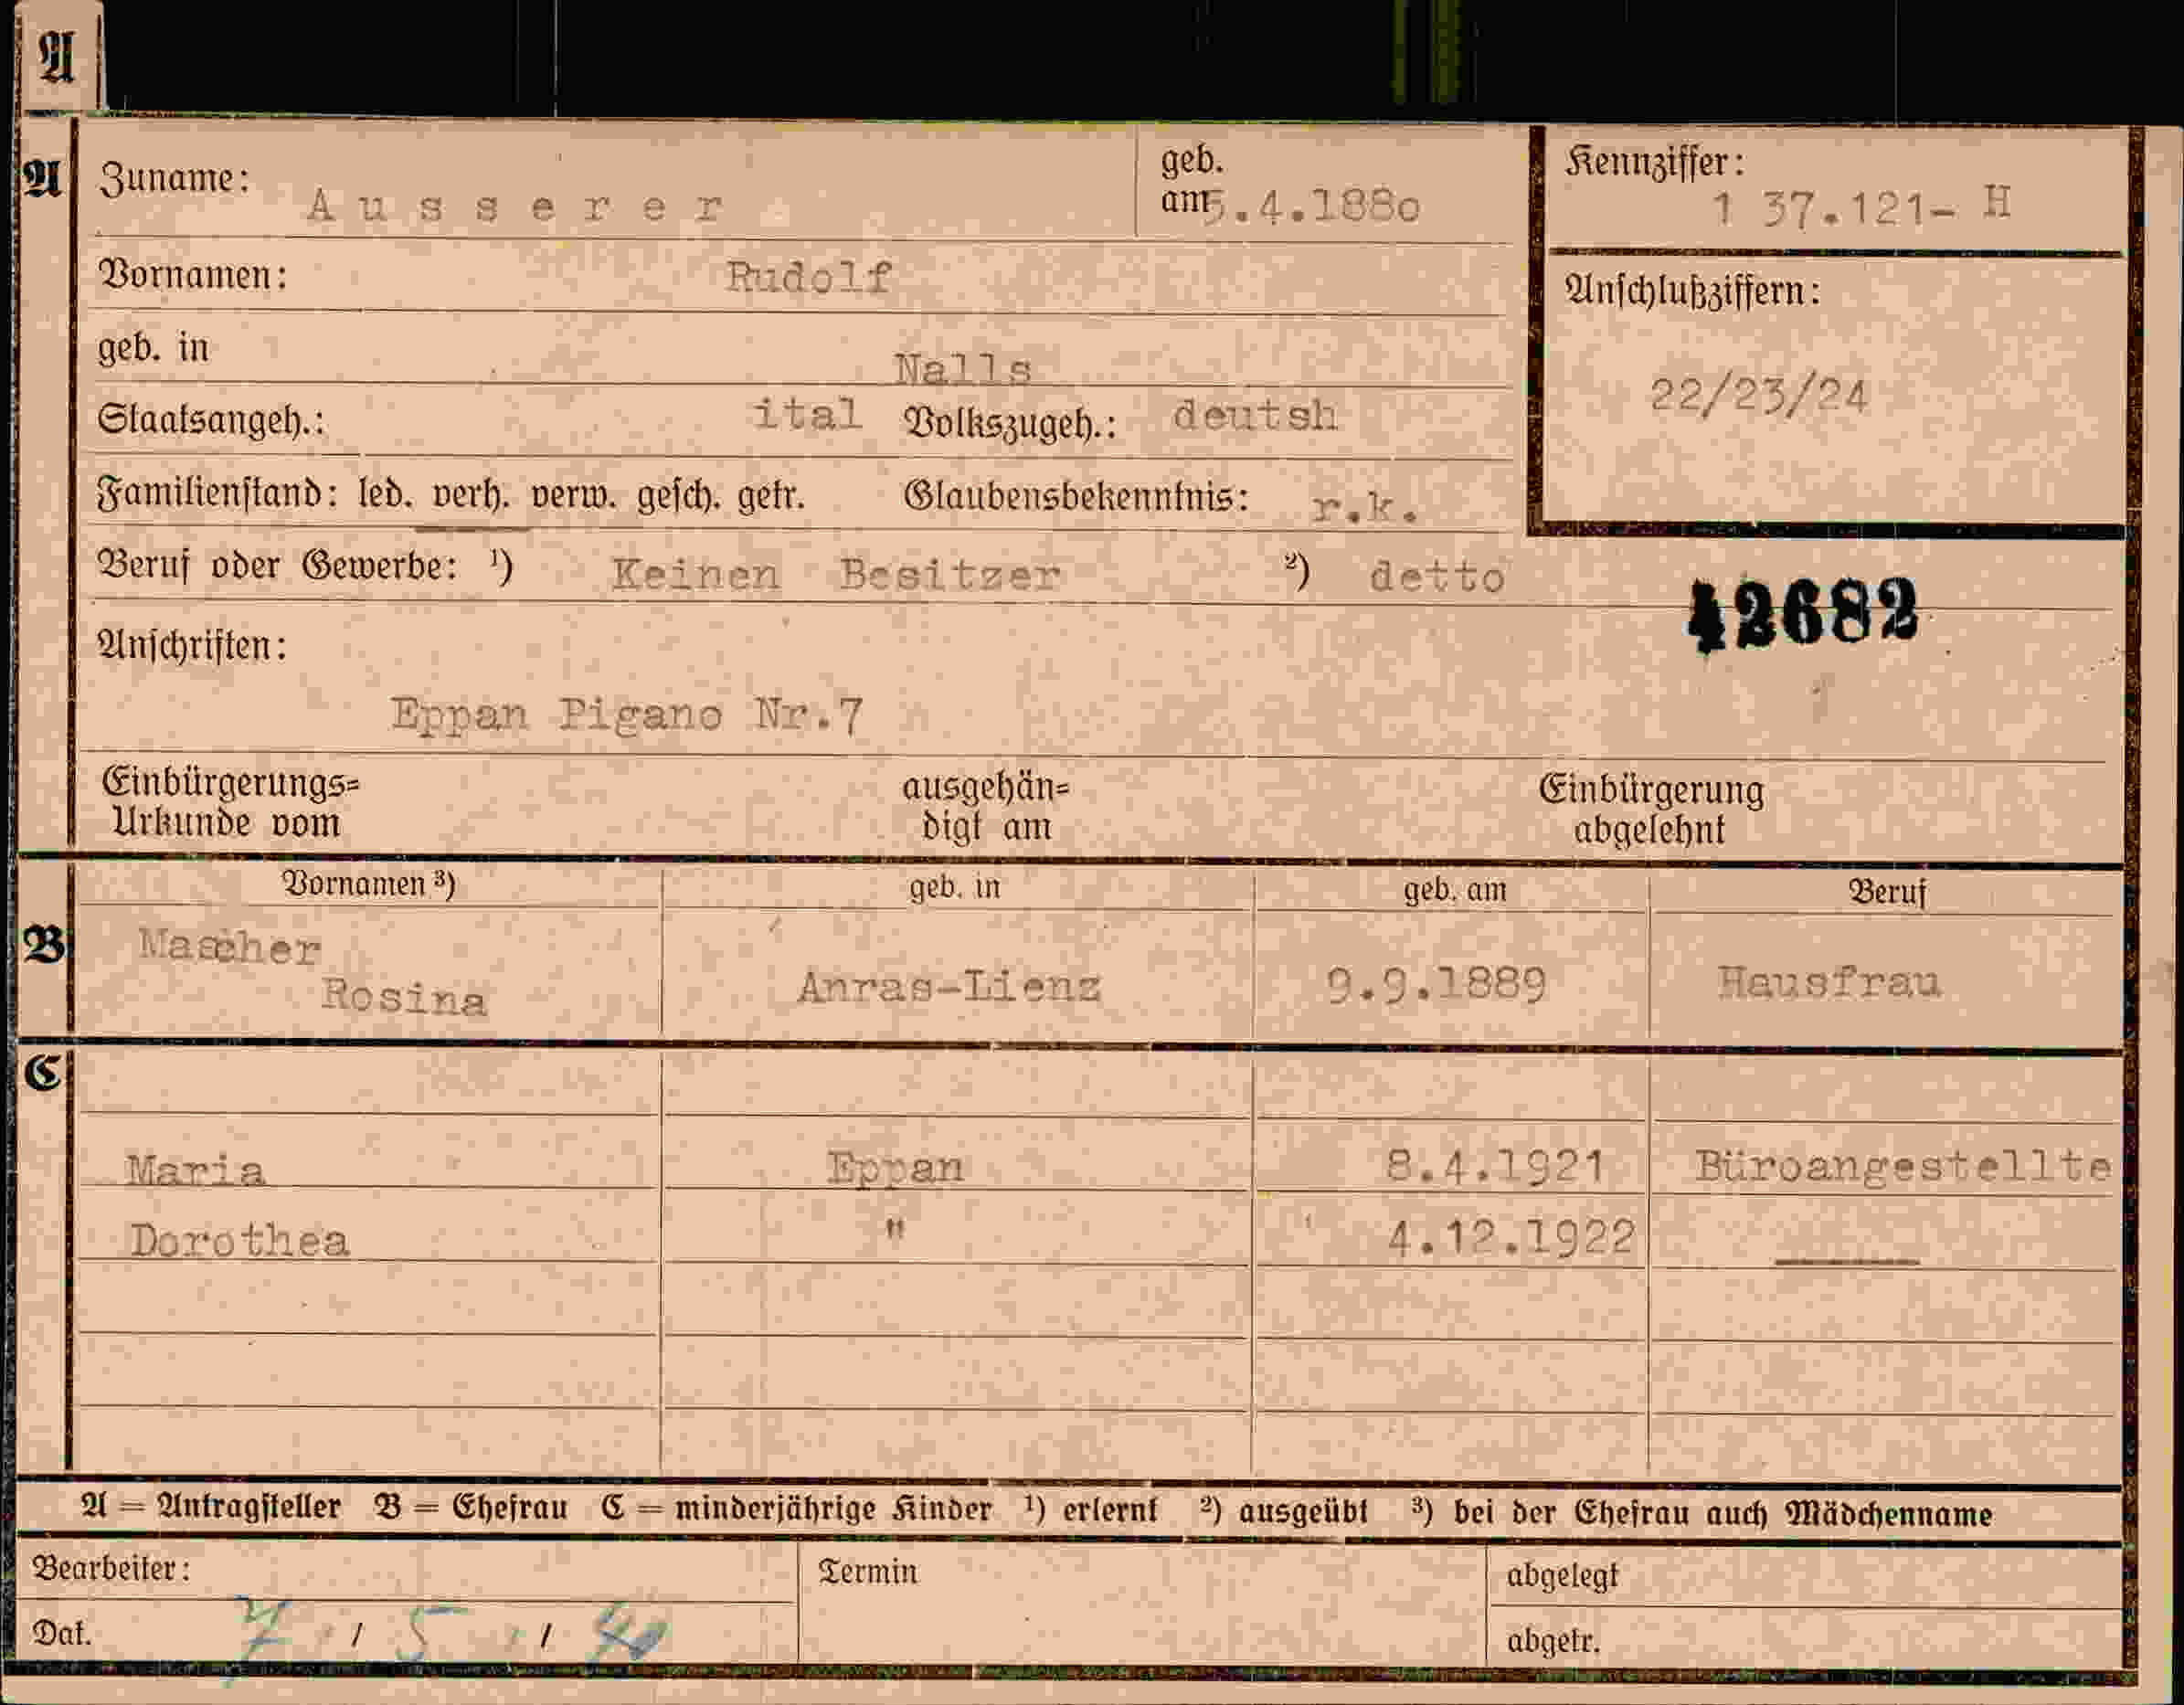 A
A
Zuname: Ausserer geb. am 5.4.1880 Kennziffer: 1 37.121- H
Vornamen: Rudolf
Anschlußziffern:
geb. in Nalls
22/23/24
Staatsangeh.: ital Volkszugeh.: deutsh
Familienstand: led. verh. verw. gesch. getr. Glaubensbekenntnis: r.k.
Beruf oder Gewerbe: ¹) Keinen Besitzer ²) detto
42682
Anschriften:
Eppan Pigano Nr.7
Einbürgerungs= ausgehän= Einbürgerung
Urkunde vom digt am abgelehnt
Vornamen ³) geb. in geb. am Beruf
B
Mascher
Rosina Anras-Lienz 9.9.1889 Hausfrau
C
Maria Eppan 8.4.1921 Büroangestellte
Dorothea " 4.12.1922
A = Antragsteller B = Ehefrau C = minderjährige Kinder ¹) erlernt ²) ausgeübt ³) bei der Ehefrau auch Mädchenname
Bearbeiter: Termin abgelegt
Dat. 7 / 5 / 40 abgetr.